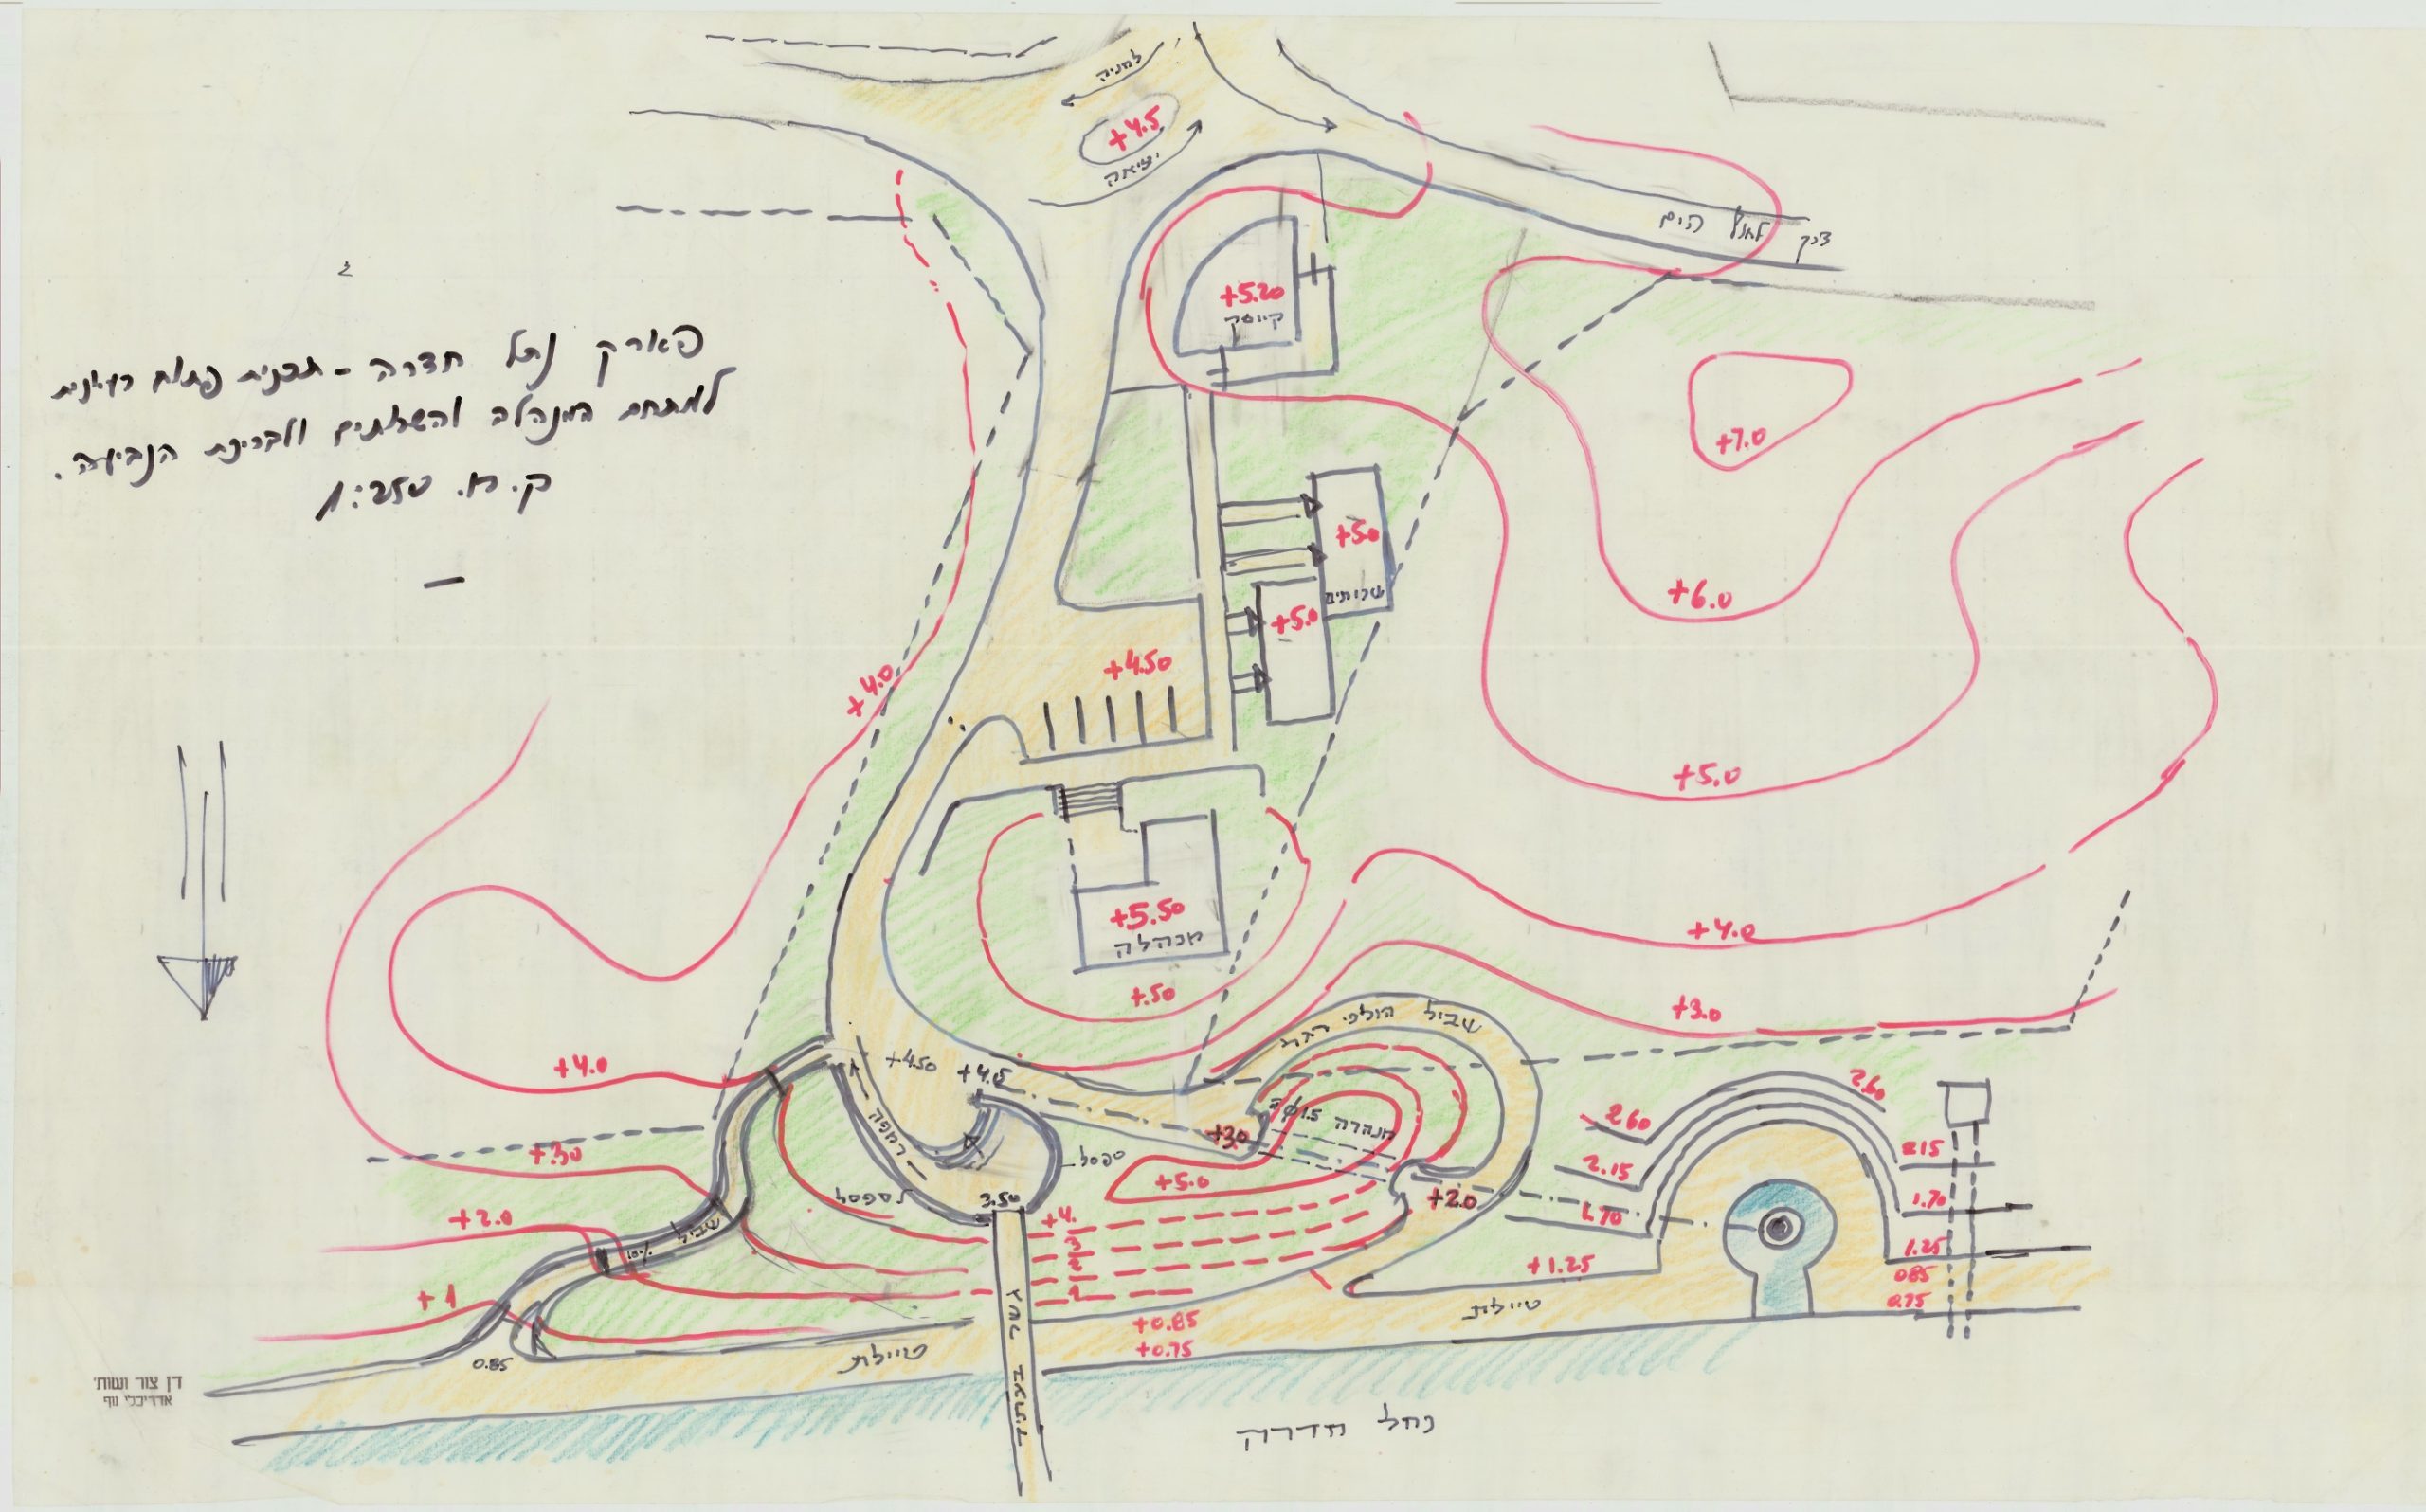 לחניה
+4.5
יציאה
דרך לאגן הים
+5.20
קיוסק
פארק נחל חדרה - תכנית פתוח רעיונית
למתחם המנהלה והשרותים ולבריכת הנביעה.
ק.מ. 1:250
+7.0
+5.0
שרותים
+5.0
+6.0
+4.50
+4.0
+5.0
+5.50
מנהלה
+4.0
+.50
+3.0
שביל הולכי רגל
+4.0
+4.50
+4.5
רמפה
ספסל
מנהרה
+3.0
+5.0
+2.0
+3.0
לספסל
3.50
2.60
2.60
2.15
2.15
1.70
1.70
+2.0
שביל
10%
+4.
3
2
1
+1.25
1.25
0.85
0.75
+1
טיילת
+0.85
+0.75
טיילת
0.85
דן צור ושות'
אדריכלי נוף
נחל חדרה